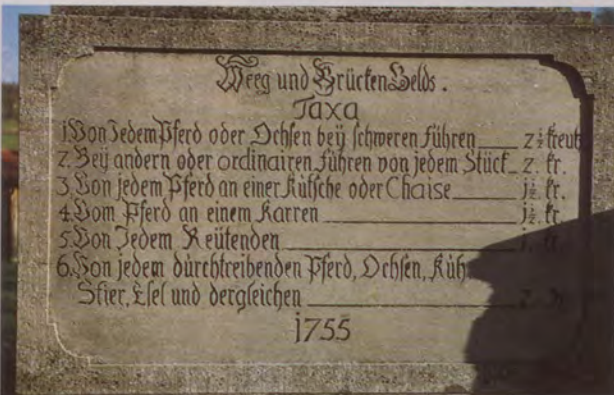 Weeg und Brücken Gelds.
Taxa
1. Von Jedem Pferd oder Ochsen beÿ schweren führen 2½ kreut
2. Beÿ andern oder ordinairen führen von jedem Stück 2. kr.
3. Von jedem Pferd an einer Kütsche oder Chaise 1½. kr.
4. Vom Pferd an einem Karren 1½. kr.
5. Von Jedem Reütenden 1. kr.
6. Von jedem dürchtreibenden Pferd, Ochsen, Küh
Stier, Esel und dergleichen
1755